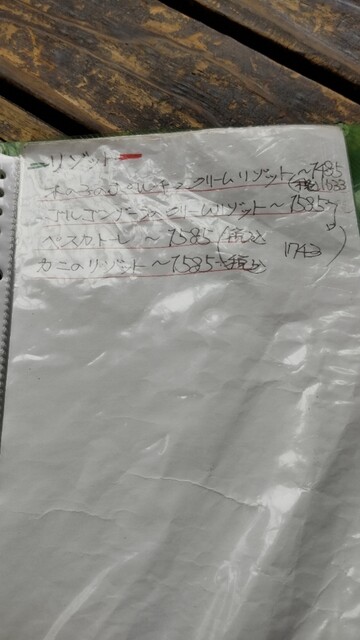 リゾット
きのことベーコンのクリームリゾット〜¥1485
税込1633
ゴルゴンゾーラクリームリゾット〜¥1585
ペスカトーレ〜¥1585(税込 1743)
カニのリゾット〜¥1585 税込